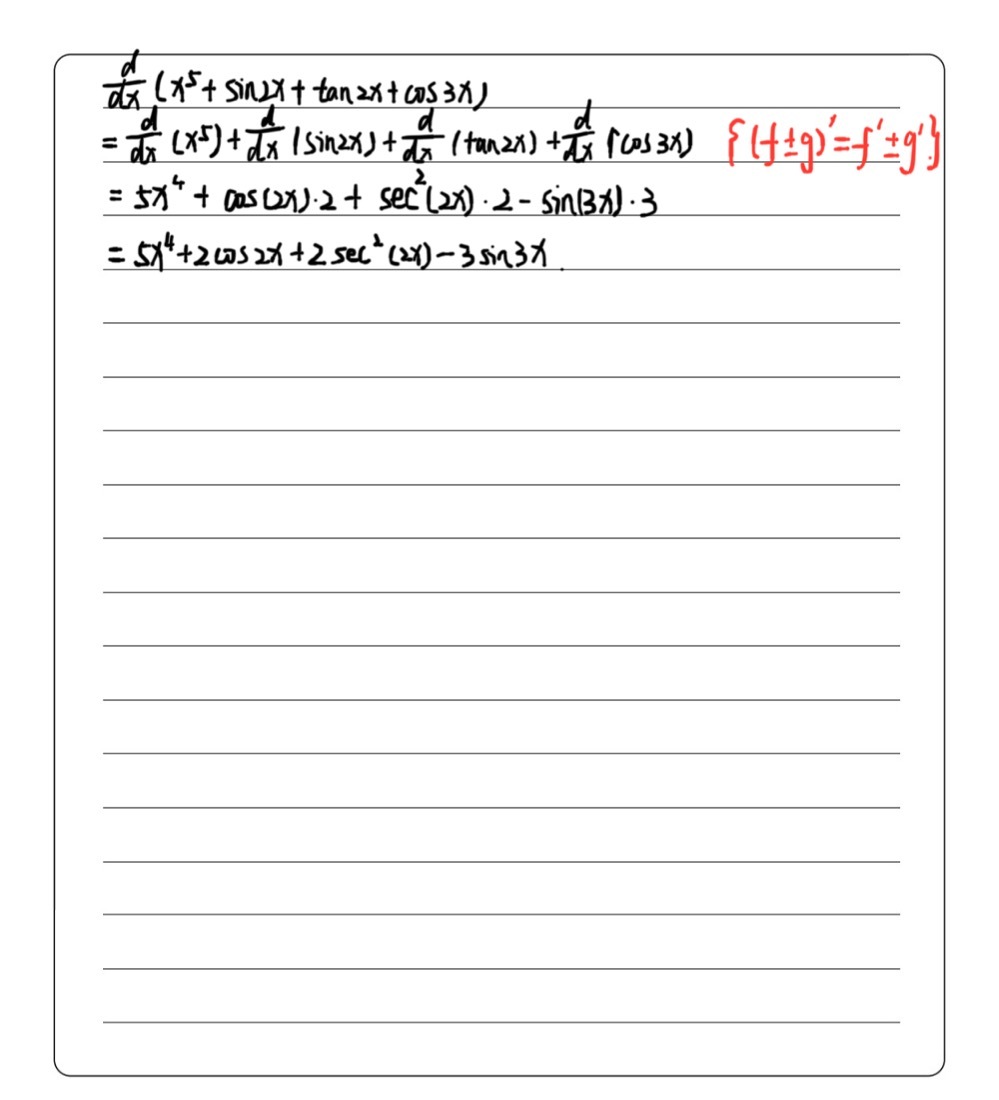 d/dx (x⁵ + sin2x + tan2x + cos3x)
= d/dx (x⁵) + d/dx (sin2x) + d/dx (tan2x) + d/dx (cos3x) {(f±g)'=f'±g'}
= 5x⁴ + cos(2x)·2 + sec²(2x)·2 - sin(3x)·3
= 5x⁴ + 2cos2x + 2sec²(2x) - 3sin3x.